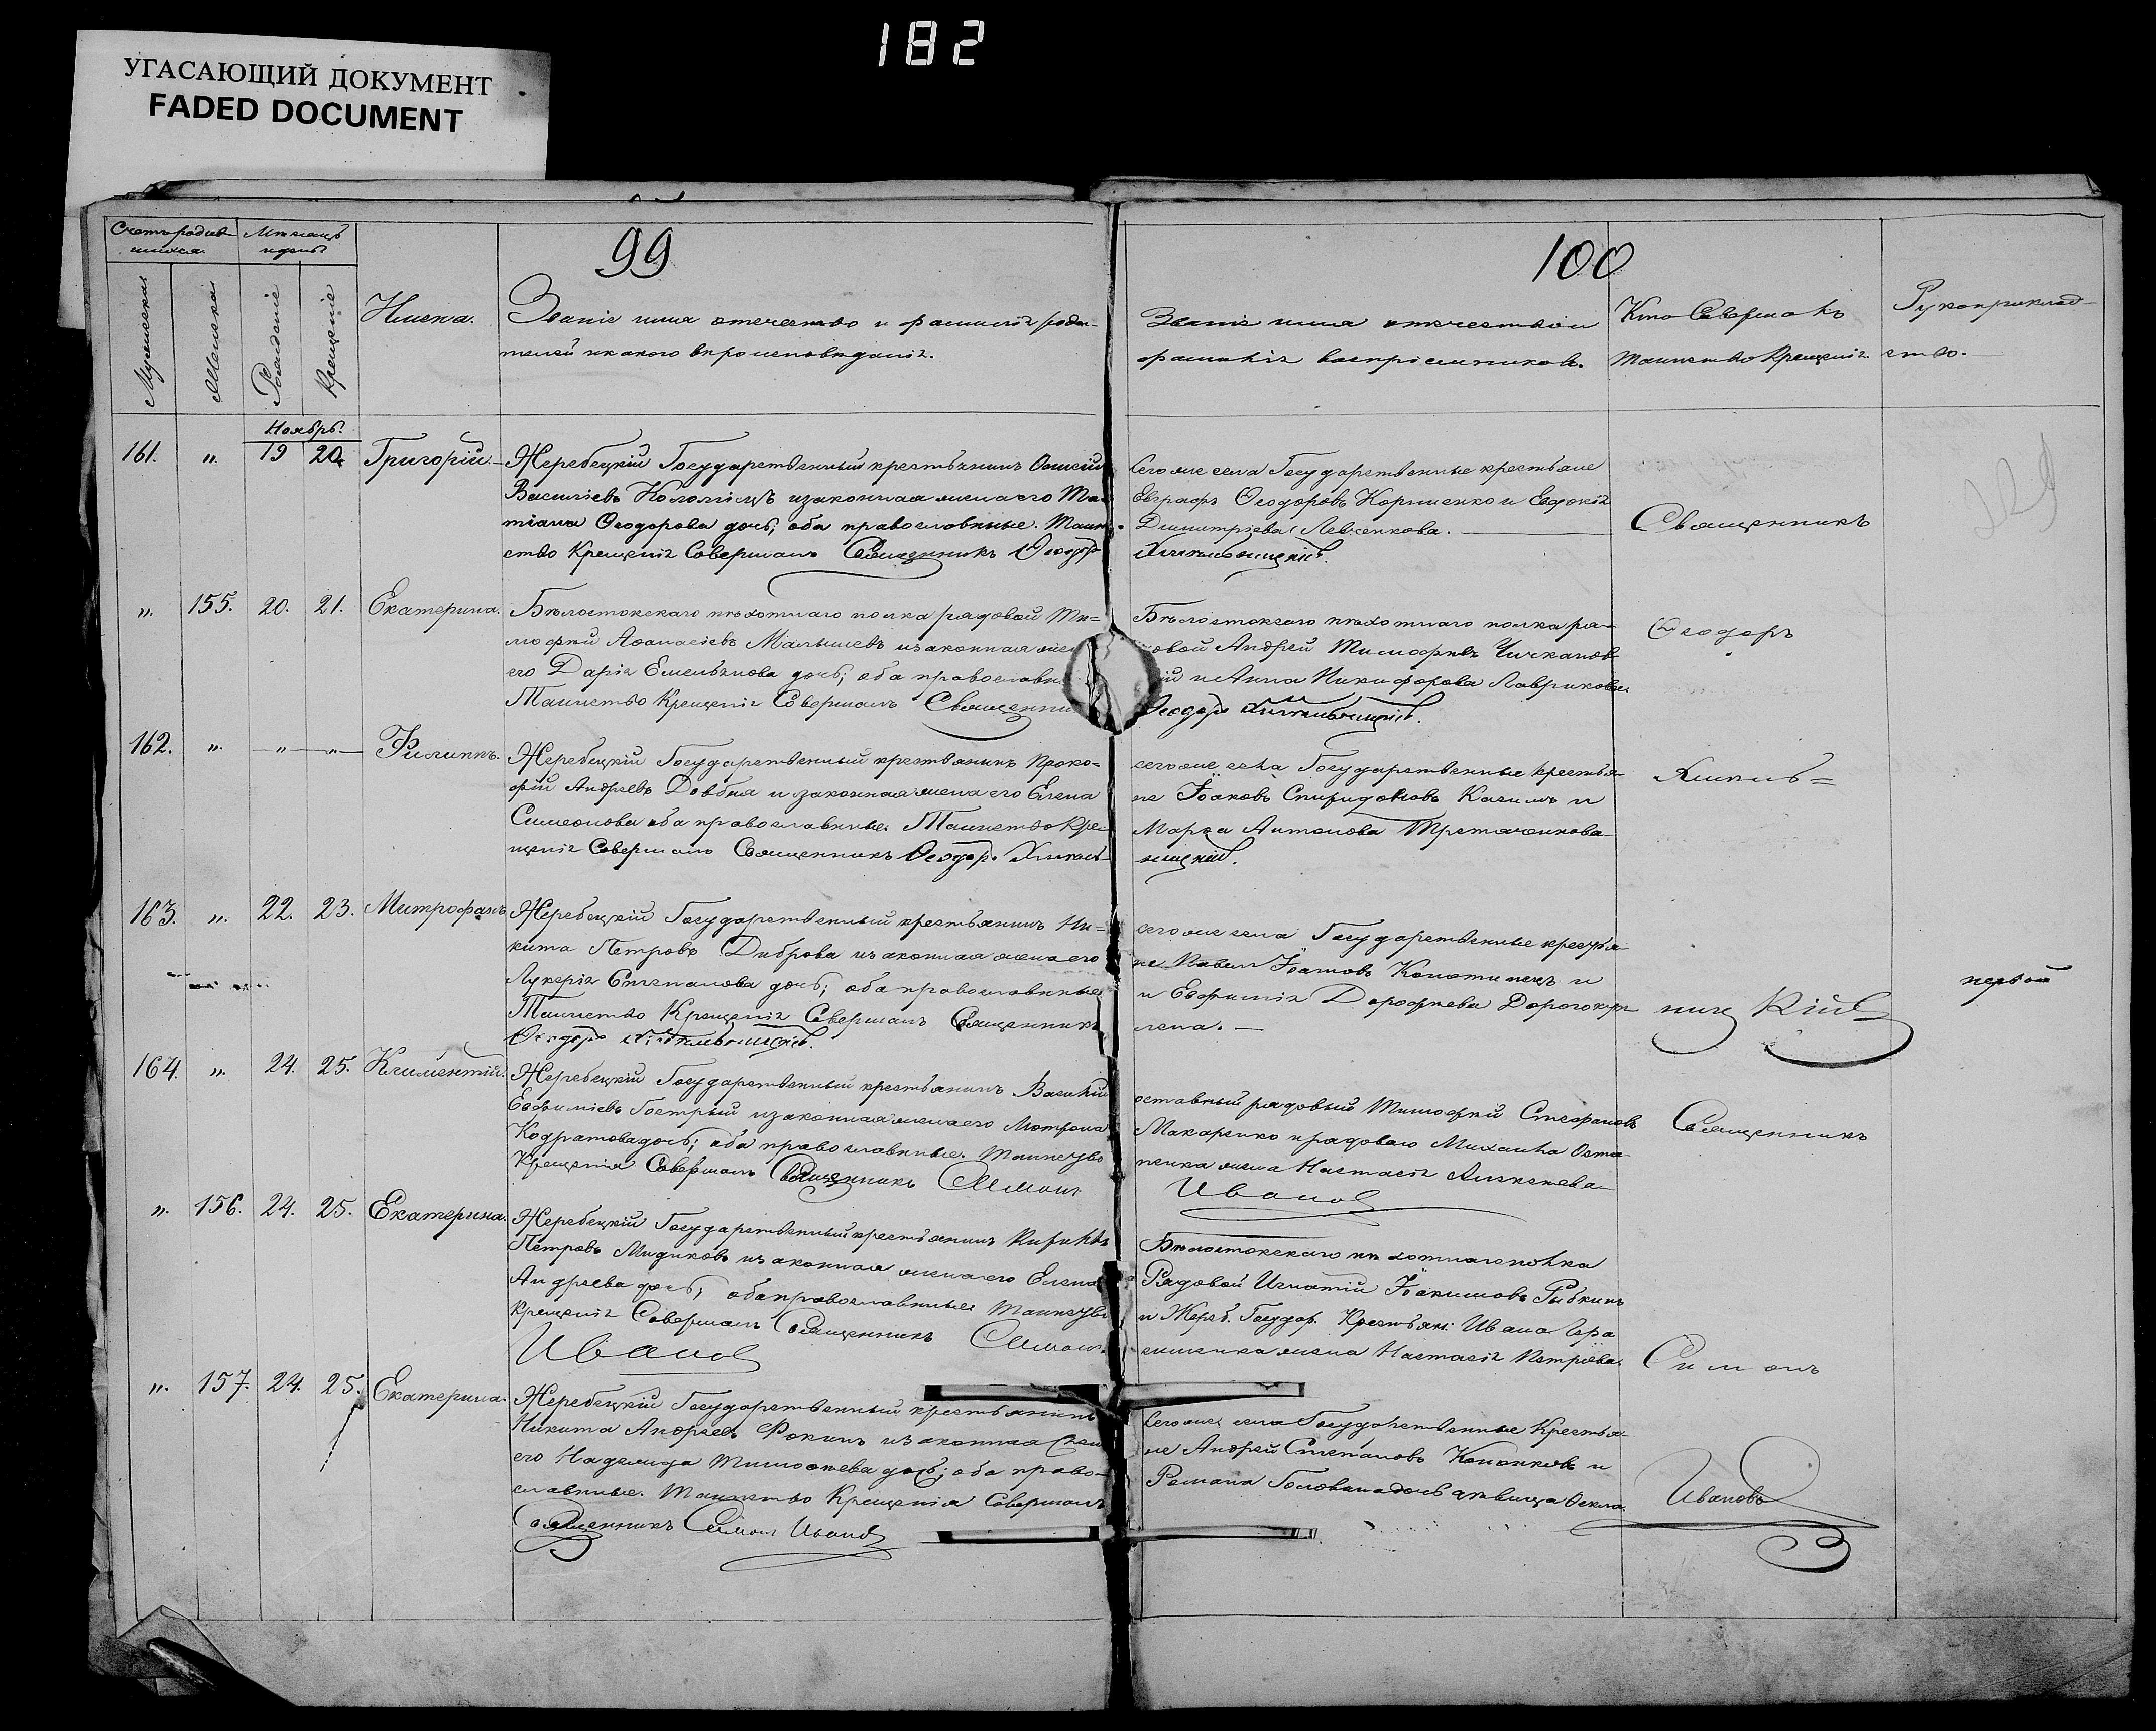 182
УГАСАЮЩИЙ ДОКУМЕНТ
FADED DOCUMENT
99
100
Счетъ родив-
шихся.
Мѣсяцъ
и день
Мужеска.
Женска
Рожденіе
Крещеніе
Имена.
Званіе имя отечество и фамилія роди-
телей и какого вѣроисповѣданія.
Званіе имя отечество и
фамилія воспріемниковъ.
Кто Совершалъ
таинство Крещенія
Рукоприклад-
ство.
Ноябрь.
161. „ 19 20. Григорій.
Жеребецкій Государственный крестьянинъ
Василіевъ Коломіецъ и законная жена его Та-
тіана Ѳеодорова дочь; оба православные. Таин-
ство Крещенія Совершалъ Священникъ Ѳеодоръ
Сего же села Государственные крестьяне
Евграфъ Ѳеодоровъ Корниенко и Евдокія
Димитріева Левченкова.
Священникъ
„ 155. 20. 21. Екатерина.
Бѣлостокскаго пѣхотнаго полка рядовой Ти-
мофѣй Аѳанасіевъ Малышевъ и законная жен
его Дарія Емельянова дочь; оба православн
Таинство Крещенія Совершалъ Священни
Бѣлостокскаго пѣхотнаго полка ря-
довой Андрей Тимофѣевъ
и Анна Никифорова Лаврикова
Ѳеодоръ
Ѳеодоръ
162. „ — „ — „ — Филиппъ.
Жеребецкій Государственный крестьянинъ Проко-
фій Андреевъ Довбня и законная жена его Елена
Симеонова оба православные. Таинство Кре-
щенія Совершалъ Священникъ Ѳеодоръ
сего же села Государственные крестья-
не Іоаковъ Спиридоновъ Касимъ и
Марѳа Антонова Третяченкова
ницкій.
163. „ 22. 23. Митрофанъ
Жеребецкій Государственный крестьянинъ Ни-
кита Петровъ Диброва и законная жена его
Лукерія Степанова дочь; оба православные
Таинство Крещенія Совершалъ Священникъ
Ѳеодоръ
сего же села Государственные крестья-
не Павелъ Іоановъ Конотипецъ и
и Евфимія Дорофѣева
лена. —
ницкій
первой
164. „ 24. 25. Климентій.
Жеребецкій Государственный крестьянинъ Василій
Евфиміевъ Гострый и законная жена его Мотрона
Кодратова дочь; оба православные. Таинство
Крещенія Совершалъ Священникъ Симонъ
рядовый Тимофѣй Стефановъ
Макаренко и рядоваго Михаила Оста-
пенка жена Настасія Алексѣева
Ивановъ
Священникъ
„ 156. 24. 25. Екатерина.
Жеребецкій Государственный крестьянинъ Кирилъ
Петровъ Мидиковъ и законная жена его Елена
Андреева дочь, оба православные Таинство
Крещенія Совершалъ Священникъ Симонъ
Ивановъ
Бѣлостокскаго пѣхотнаго полка
Рядовой Игнатій Іоакимовъ Рыбкинъ
и Жереб. Государ. Крестьян: Ивана Гера
сименка жена Настасія Петрова.
Симонъ
„ 157. 24. 25. Екатерина.
Жеребецкій Государственный крестьянинъ
Никита Андреевъ Фокинъ и законная жена
его Надежда Тимоѳеева дочь; оба право-
славные. Таинство Крещенія Совершалъ
Священникъ Симонъ Ивановъ
Сего же села Государственные Крестья-
не Андрей Степановъ Кононковъ и
Романа Головина дочь дѣвица
Ивановъ